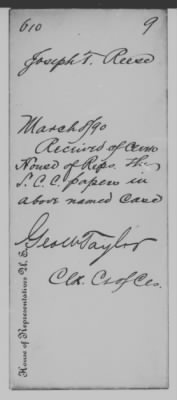 610 9
Joseph T. Reese
March 8/90
Received of Clerk
House of Reps. the
S. C. C. papers in
above named case
Geo W Taylor
Clk. Cs of Cls.
House of Representatives U. S.